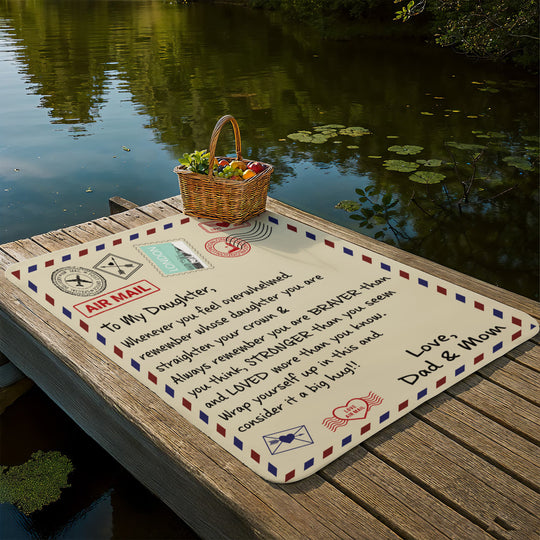 LONDON
AIR MAIL
To My Daughter,
Whenever you feel overwhelmed
remember whose daughter you are
straighten your crown &
Always remember you are BRAVER-than
you think, STRONGER-than you seem
and LOVED more than you know.
Wrap yourself up in this and
consider it a big hug!!
Love,
Dad & Mom
LOVE
AIR MAIL